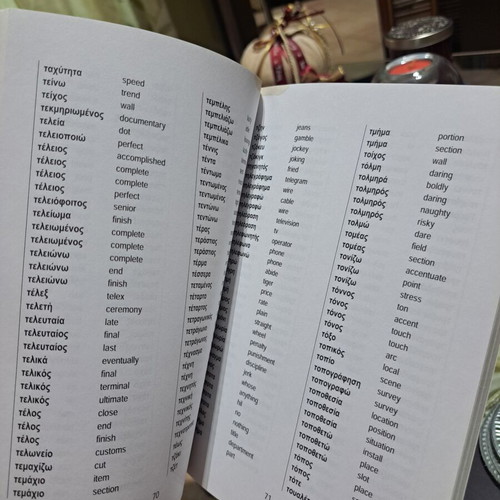 ταχύτητα speed
τείνω trend
τείχος wall
τεκμηριωμένος documentary
τελεία dot
τελειοποιώ perfect
τέλειος accomplished
τέλειος complete
τέλειος complete
τέλειος perfect
τελειόφοιτος senior
τελείωμα finish
τελειωμένος complete
τελειωμένος complete
τελειώνω complete
τελειώνω end
τελειώνω finish
τέλεξ telex
τελετή ceremony
τελευταία late
τελευταίος final
τελευταίος last
τελικά eventually
τελικός final
τελικός terminal
τελικός ultimate
τέλος close
τέλος end
τέλος finish
τελωνείο customs
τεμαχίζω cut
τεμάχιο item
τεμάχιο section
70
τεμπέλης
τεμπελιάζω
τεμπελιάζω
τεμπέλικα
τέννις
τέντα
τέντωμα
τεντωμένος
τεντωμένος
τεντώνω
τεντώνω
τέρας
τεράστιος
τεράστιος
τέρμα
τέσσερα
τεταμένος
τέταρτο
τέταρτος
τετραγωνικός
τετράγωνο
τετράγωνος
τέχνασμα
τέχνη
τέχνη
τεχνητός
τεχνική
τεχνικός
τεχνικός
jeans
gamble
jockey
joking
fried
telegram
wire
cable
wire
television
tv
operator
phone
phone
abide
tiger
price
rate
plain
straight
wheel
penalty
punishment
discipline
jerk
whose
anything
hit
no
nothing
title
department
part
71
τμήμα portion
τμήμα section
τοίχος wall
τόλμη daring
τολμηρά boldly
τολμηρός daring
τολμηρός naughty
τολμηρός risky
τολμώ dare
τομέας field
τομέας section
τονίζω accentuate
τονίζω point
τονίζω stress
τόννος ton
τόνος accent
τόνος touch
τόνος touch
τόξο arc
τοπικός local
τοπίο scene
τοπογράφηση survey
τοπογραφώ survey
τοποθεσία location
τοποθεσία position
τοποθεσία situation
τοποθετώ install
τοποθετώ place
τοποθετώ slot
τόπος place
τόπος
τότε